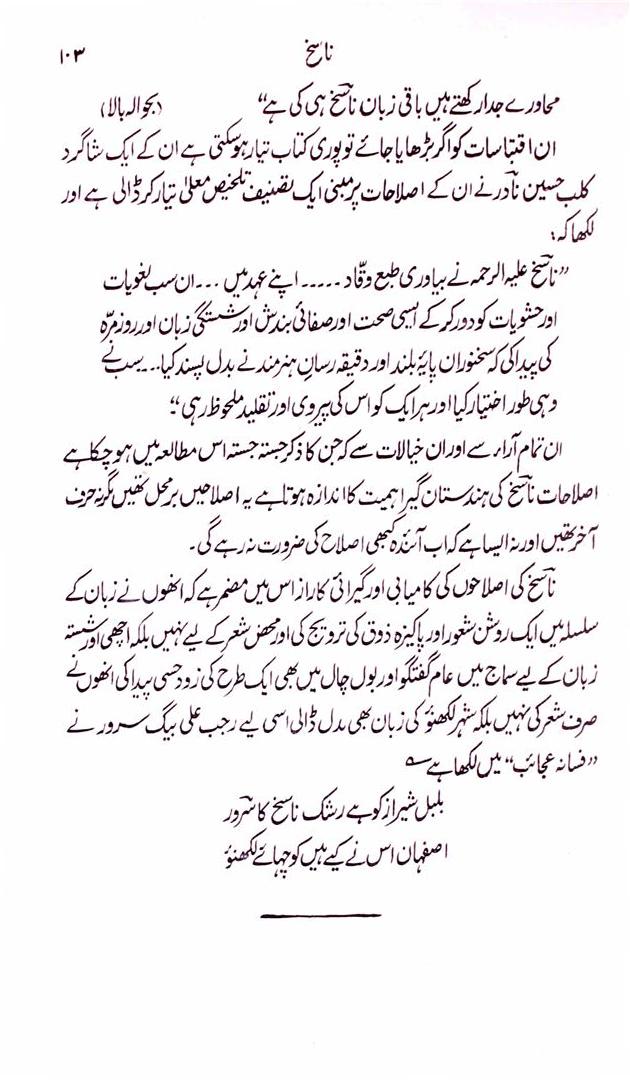 ناسخ ۱۰۳
محاورے جدا رکھتے ہیں باقی زبان ناسخؔ ہی کی ہے“ (بحوالہ بالا)
ان اقتباسات کو اگر بڑھایا جائے تو پوری کتاب تیار ہو سکتی ہے ان کے ایک شاگرد
کلب حسین نادرؔ نے ان کے اصلاحات پر مبنی ایک تصنیف تلخیص معلیٰ تیار کر ڈالی ہے اور
لکھا کہ :
”ناسخؔ علیہ الرحمہ نے بیاوری طبع وقّاد ..... اپنے عہد میں ... ان سب لغویات
اور حشویات کو دور کر کے ایسی صحت اور صفائی بندش اور شستگی زبان اور روزمرّہ
کی پیدا کی کہ سخنوران پایۂ بلند اور دقیقہ رسانِ ہنرمند نے بدل پسند کیا... سب نے
وہی طور اختیار کیا اور ہر ایک کو اس کی پیروی اور تقلید ملحوظ رہی“۔
ان تمام آراء سے اور ان خیالات سے کہ جن کا ذکر جستہ جستہ اس مطالعہ میں ہو چکا ہے
اصلاحات ناسخؔ کی ہندستان گیر اہمیت کا اندازہ ہوتا ہے یہ اصلاحیں بر محل تھیں مگر نہ حرف
آخر تھیں اور نہ ایسا ہے کہ اب آئندہ کبھی اصلاح کی ضرورت نہ رہے گی۔
ناسخؔ کی اصلاحوں کی کامیابی اور گیرائی کا راز اس میں مضمر ہے کہ انھوں نے زبان کے
سلسلہ میں ایک روشن شعور اور پاکیزہ ذوق کی ترویج کی اور محض شعر کے لیے نہیں بلکہ اچھی اور شستہ
زبان کے لیے سماج میں عام گفتگو اور بول چال میں بھی ایک طرح کی زود حسی پیدا کی انھوں نے
صرف شعر کی نہیں بلکہ شہر لکھنؤ کی زبان بھی بدل ڈالی اسی لیے رجب علی بیگ سرور نے
”فسانہ عجائب“ میں لکھا ہے ؎
بلبل شیراز کو ہے رشک ناسخ کا سرورؔ
اصفہان اس نے کیے ہیں کوچہائے لکھنؤ